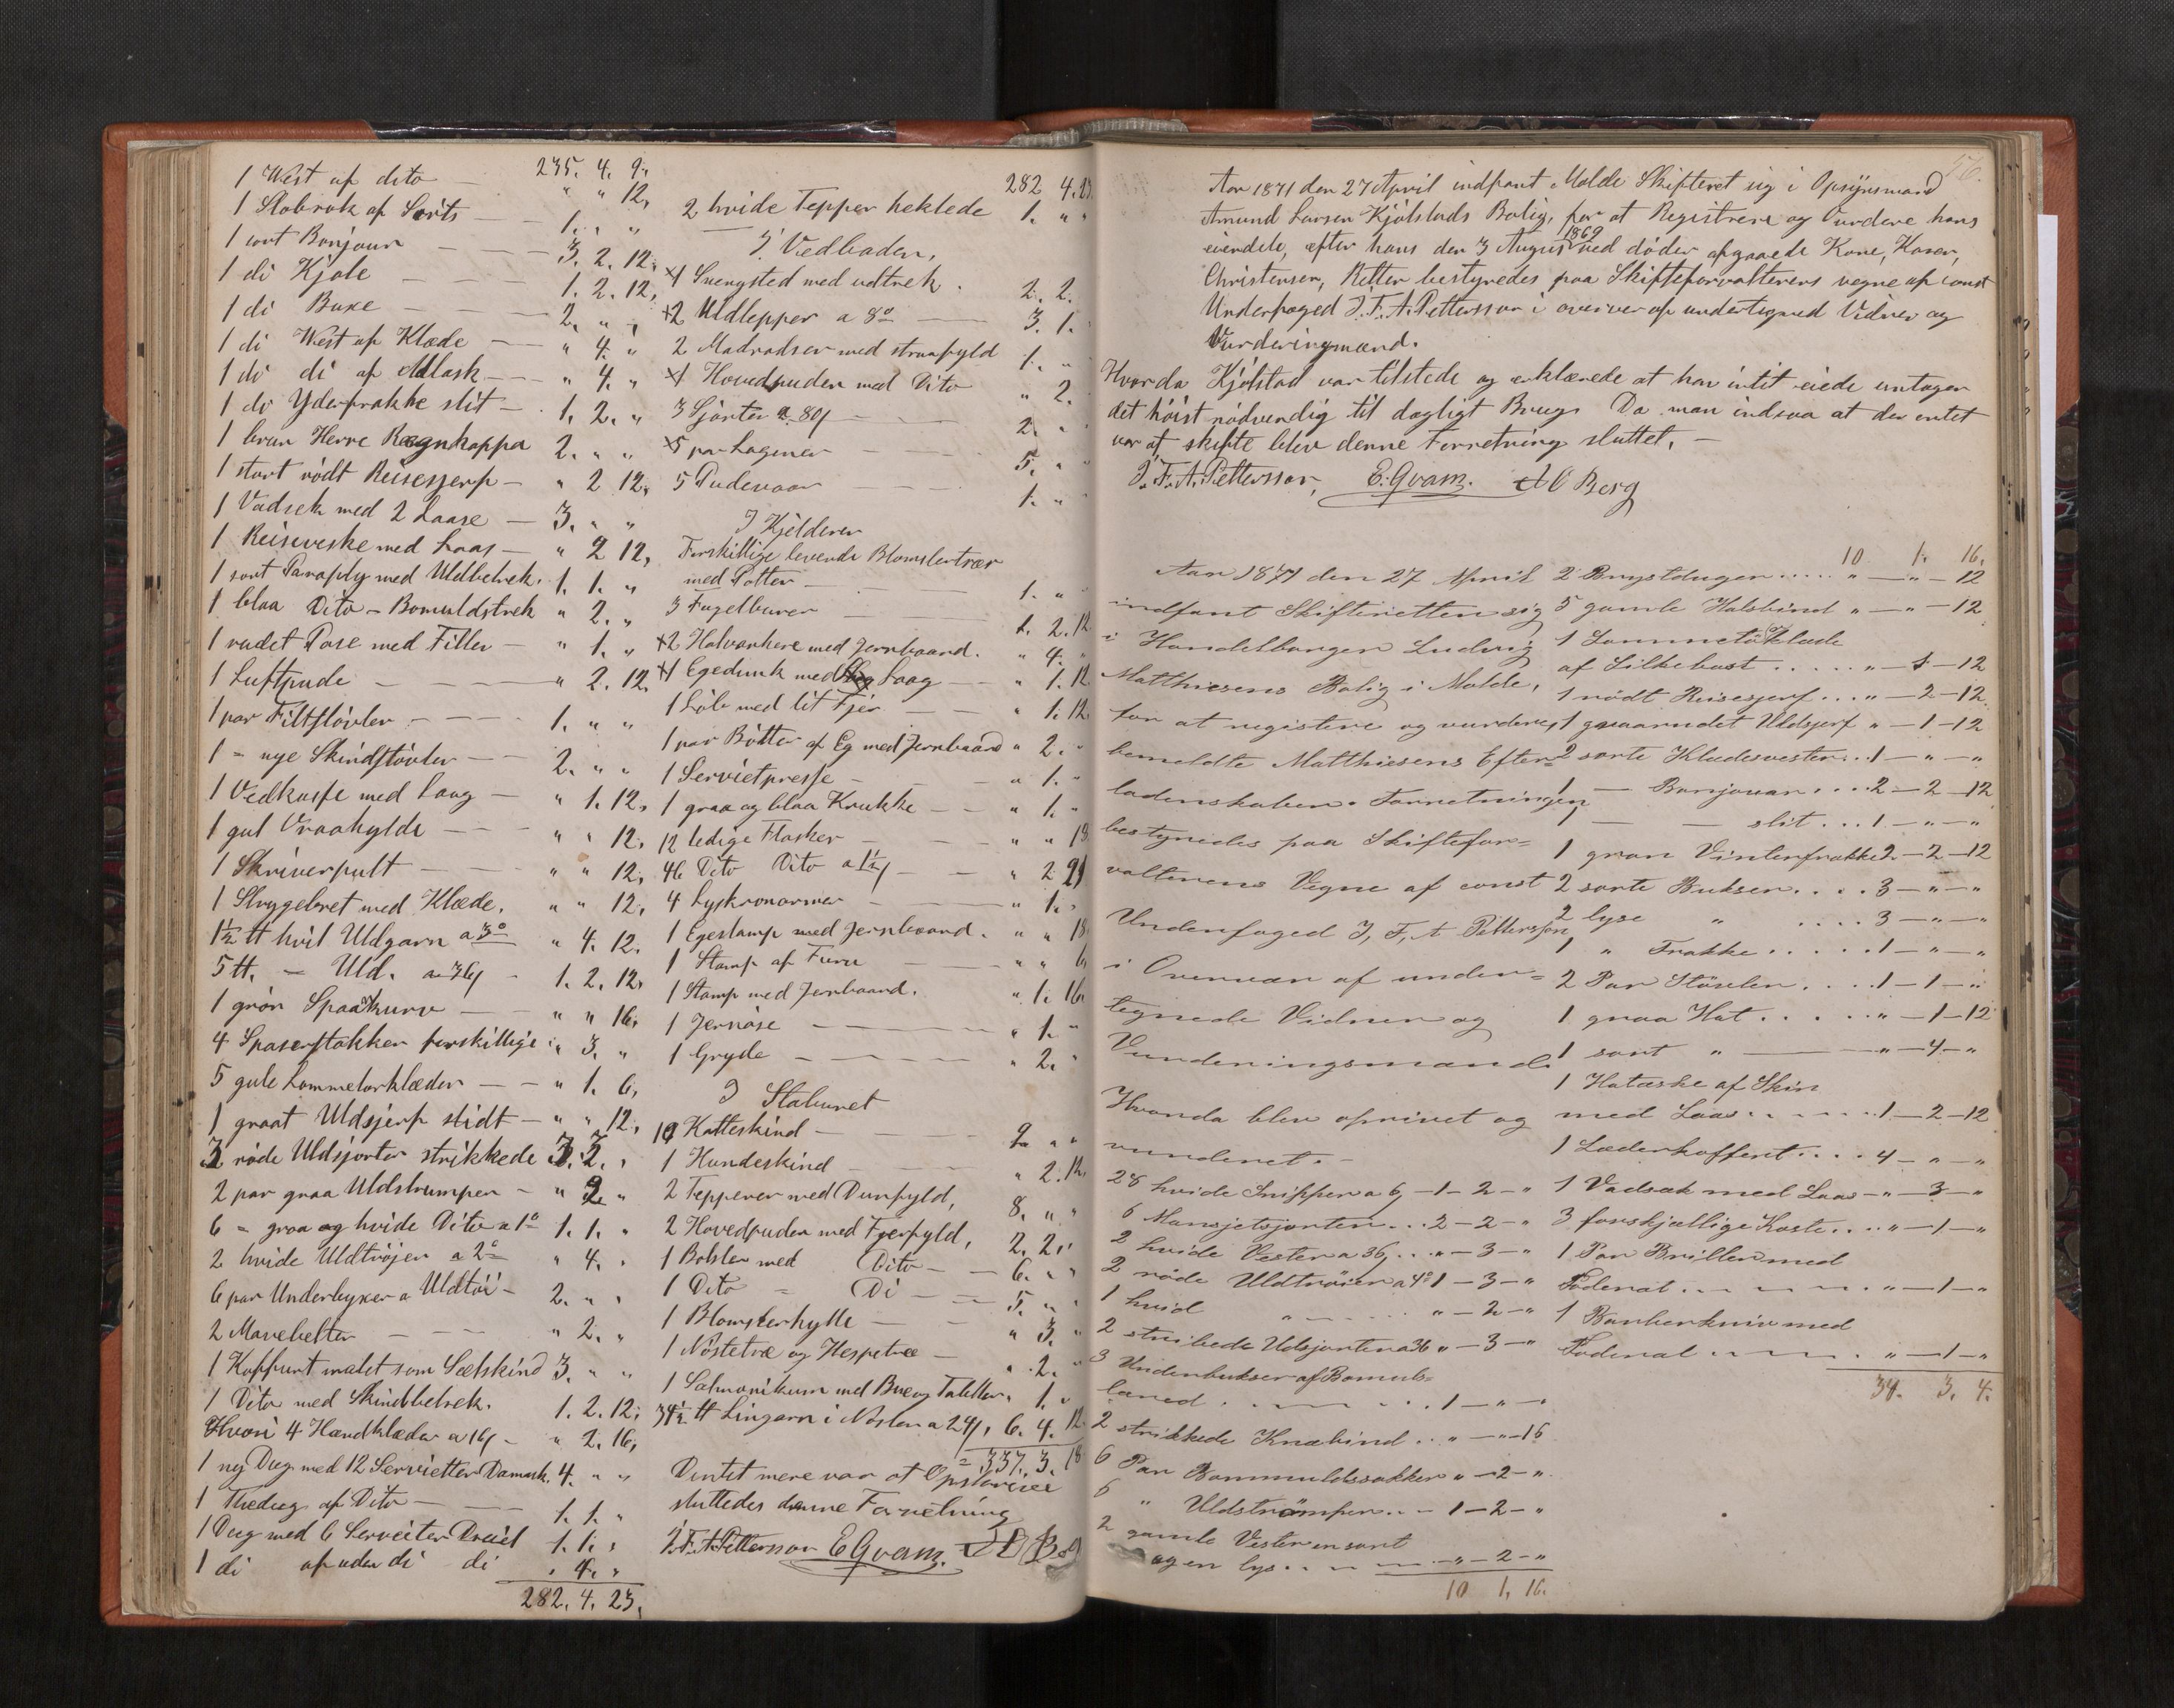 235. 4. 9.
1 West af dito — " " 12,
1 Slobrok af Sirts — 1. " "
1 sort Bonjour — 3. 2. 12,
1 di Kjole — 1. 2. 12,
1 di Buxe — 2. " "
1 di West af Klæde — " 4. "
1 do di af Atlask — " 4. "
1 do Yderfrakke slit — 1. 2. "
1 brun Herre Regnkappa 2. " "
1 stort rödt Reisesjerf — " 2 12,
1 Vadsek med 2 Laase — 3. " "
1 Reiseveske med Laas — " 2 12,
1 sort Paraply med Uldbetrek. 1. 1. "
1 blaa Dito - Bomuldstrek " 2. "
1 rudet Pose med Filler — " 1. "
1 Luftpude — " 2. 12.
1 par Filtstövler — 1. " "
1 " nye Skindstövler — 2. " "
1 Vedkasse med Laag — " 1. 12,
1 gul Vraahylde — " " 12,
1 Skriverpult — " " 12,
1 Strygebret med Klæde. " " 12,
1½ ℔ hvit Uldgarn a 3o " 4. 12.
5 ℔. — Uld. a 36/ - 1. 2. 12,
1 grön Spaakurv — " " 16,
4 Spaserstokker forskillige " 3. "
5 gule Lommetorklæder — " 1. 6,
1 graat Uldsjerf slidt — " " 12,
3 röde Uldsjorter strikkede 3. 2. "
2 par graa Uldstrumper — " 2. "
6 " graa og hvide Dito a 1o 1. 1. "
2 hvide Uldtröjer a 2o " 4. "
6 par Underbyxer a Uldtöi - 2. " "
2 Mavebelter — " 2. "
1 Koffert malet som Sælskind 3. " "
1 Dito med Skindbetrek. 1. 2. 12,
Hvori 4 Handklæder a 16/ - " 2. 16,
1 ny Dug med 12 Servietter Damask. 4. " "
1 Thedug af Dito — 1. 1. "
1 Dug med 6 Servieter Dreiel 1. 1. "
1 di af uden di di " 4. "
282. 4. 23,
282 4. 23
2 hvide Tepper heklede 1. " "
I Vedboden,
1 Svengsted med udtrek. 2. 2.
2 Uldlepper a 8o — 3. 1.
2 Madradser med straafyld 1. "
1 Hovedpuder med Dito " 2.
3 Sjorter a 80/ — 2. "
5 par Lagener — 5. "
5 Pudevaar — 1. "
I Kjelderen
Forskillige levende Blomstertrær
med Potter — 1. "
3 Fugelburer — 1. 2. 12
2 Halvankere med Jernbaand. " 4. "
1 Egedunk med Laag — " 1. 12
1 Löb med lit Fjer — " 1. 12
1 par Bötter af Eg med Jernbaand " 2. "
1 Servietpresse — " 1. "
1 graa og blaa Krukke — " 1. "
12 ledige Flasker — " " 18
46 Dito Dito a 1½/ — " 2 21
4 Lyskronarmer — " 1. "
1 Egestamp med Jernbaand. " " 18
1 Stamp af Furu — " " 6
1 Stamp med Jernbaand. " 1. 16
1 Jernöse — " 1. "
1 Gryde — " 2. "
I Staburet
10 Katteskind — 2 " "
1 Hundeskind — " 2. 12
2 Tepperer med Dunfyld, 8. " "
2 Hovedpuder med Fjerfyld, 2. 2. "
1 Bolster med Dito — 6. " "
1 Dito " Di — 5. " "
1 Blomsterhylle — " 3. "
1 Nöstetræ og Hespetræ — " 2. "
1 Salmonikum med Bue og Tabeller. 1. "
34½ ℔ Lingarn i Nöster a 24/. 6. 4. 12.
= 337. 3. 18
Da intet mere var at Opskrive
sluttedes denne Forretning
J. F. A. Pettersson E Qvam. A O Berg
56.
Aar 1871 den 27 April indfant Molde Skifteret sig i Opsynsmand
Amund Larsen Kjölstads Bolig, for at Registrere og Vurdere hans
eiendele, efter hans den 3 August 1869 ved döden afgaaede Kone, Karen,
Christensen, Retter bestyredes paa Skifteforvalterens vegne af const
Underfoged J. F. A. Pettersson i overver af undertegned Vidner og
Vurderingsmænd.
Hvor da Kjölstad var tilstede og erklærede at han intet eiede untagen
det höist nödvendig til dagligt Brug. Da man indsaa at der entet
var at skifte blev denne Forretning sluttet. —
J. F. A. Pettersson, E. Qvam. A O Berg
Aar 1871 den 27 April
indfant Skifteretten sig
i Handelborger Ludvig
Matthiesens Bolig i Molde,
for at registere og vurdere,
bemeldte Matthiesens Efter=
ladenskaber. Forretningen
bestyredes paa Skiftefor=
valterens Vegne af const
Underfoged J, F, A Pettersson
i Overvær af under=
tegnede Vidner og
Vurderingsmænd.
Hvorda blev oprivet og
vurderet. —
28 hvide Snipper a 6/ — 1 — 2 — "
6 Mansjetsjorter... 2 — 2 — "
2 hvide Vester a 36/... " — 3 — "
2 röde Uldtröier a 4o 1 — 3 — "
1 hvid " . . . " — 2 — "
2 stribede Udsjorter a 36 " — 3 — "
3 Underbukser af Bomuls=
lærred . . . . 1 — " — "
2 strikkede Knæbind.. " — " — 16
6 Par Bommuldssokker " — 2 — "
6 " Uldströmper... 1 — 2 — "
2 gamle Vester en sort
og en lys... " — 2 — "
10 1. 16.
10 1. 16.
2 Brystduger..... " — " — 12
5 gamle Halsbind " — " — 12
1 Lommetörklæde
af Silkebast..... " — 1 — 12
1 rödt Reisesjerf... " — 2 — 12
1 graarudet Uldsjerf " — 1 — 12
2 sorte Kladesvester... 1 — " — "
1 — Bonjouar.... 2 — 2 — 12
1 — — slit... 1 — " — "
1 gron Vinterfrakke 2 — 2 — 12
2 sorte Bukser.... 3 — " — "
2 lyse " .... 3 — " — "
1 " Frakke..... 1 — " — "
2 Par Stövler..... 1 — 1 — "
1 graa Hat..... " — 1 — 12
1 sort " — " — 4 — "
1 Hatæske af Skin
med Laas...... 1 — 2 — 12
1 Læderkoffert.... 4 — " — "
1 Vadsæk med Laas — " — 3 — "
3 forskjællige Koste... " — 1 — "
1 Par Briller med
Foderal... " — 1 — "
1 Barberkniv med
Foderal... " — 1 — "
34. 3. 4.